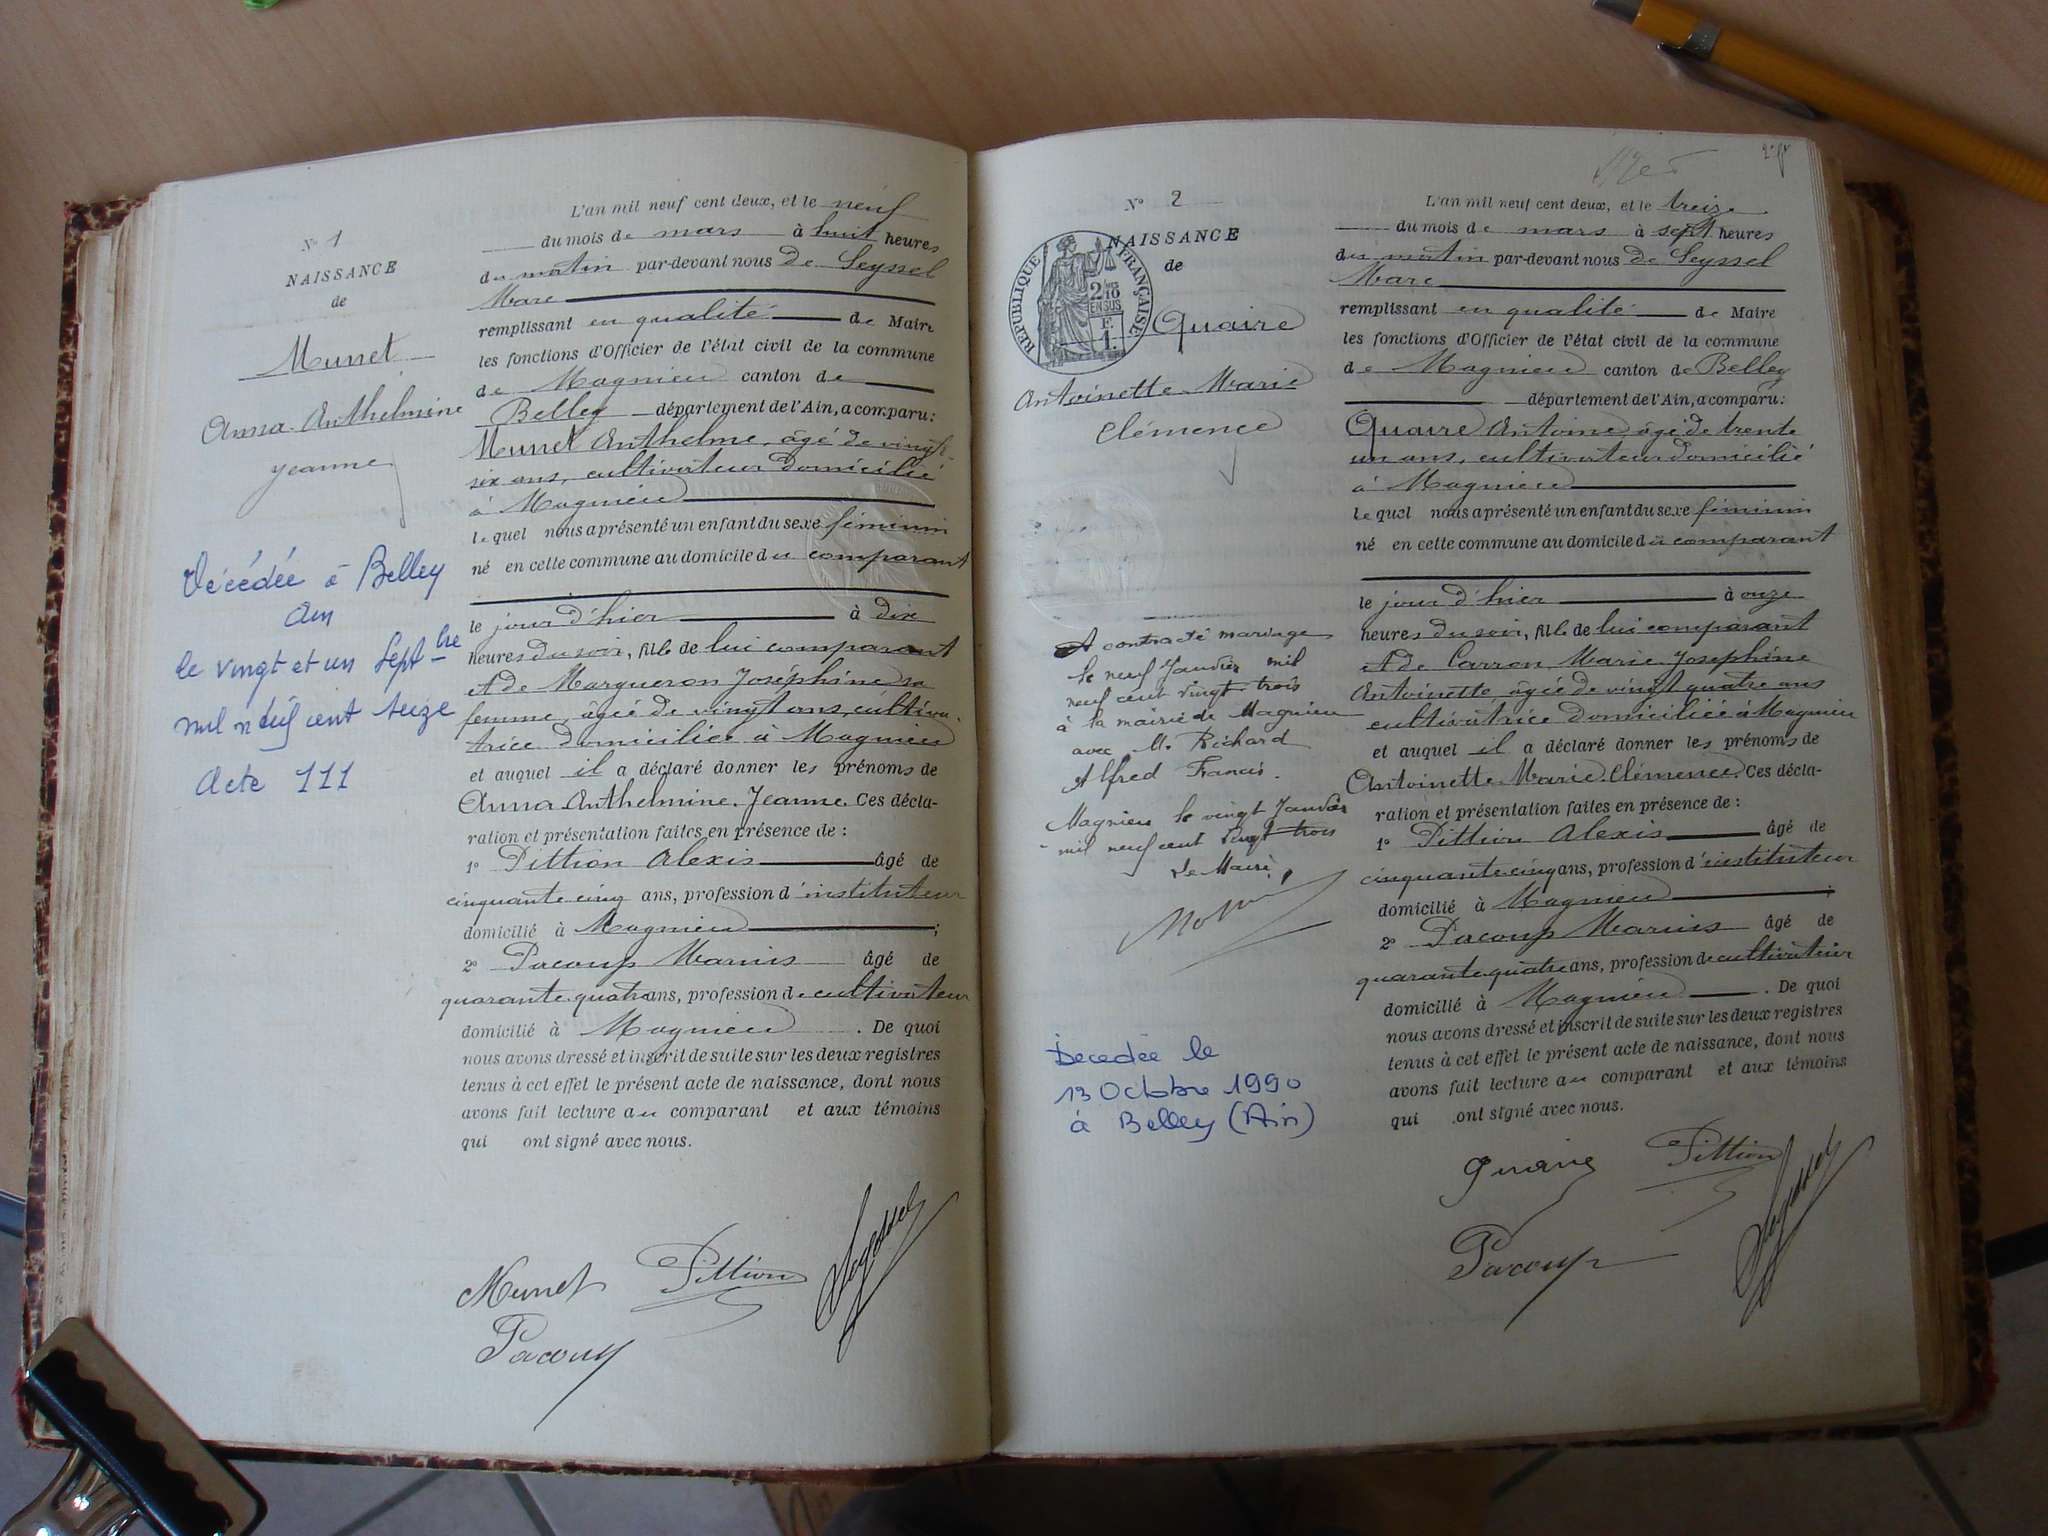 N° 1
NAISSANCE
de
Munet
Anna Anthelmine
Jeanne
Décédée à Belley
Ain
le vingt et un Septbre
mil neuf cent seize
Acte 111
L'an mil neuf cent deux, et le neuf
du mois de mars à huit heures
du matin par-devant nous De Seyssel
Marc
remplissant en qualité de Maire
les fonctions d'Officier de l'état civil de la commune
de Magnieu canton de
Belley département de l'Ain, a comparu :
Munet Anthelme, âgé de vingt-
six ans, cultivateur domicilié
à Magnieu
lequel nous a présenté un enfant du sexe féminin
né en cette commune au domicile du comparant
le jour d'hier à dix
heures du soir, fille de lui comparant
et de Margueron Joséphine sa
femme, âgée de vingt ans, cultiva-
trice domiciliée à Magnieu
et auquel il a déclaré donner les prénoms de
Anna Anthelmine Jeanne. Ces décla-
ration et présentation faites en présence de :
1° Pittion Alexis âgé de
cinquante cinq ans, profession d'instituteur
domicilié à Magnieu ;
2° Pacoup Marius âgé de
quarante quatre ans, profession de cultivateur
domicilié à Magnieu . De quoi
nous avons dressé et inscrit de suite sur les deux registres
tenus à cet effet le présent acte de naissance, dont nous
avons fait lecture au comparant et aux témoins
qui ont signé avec nous.
Munet Pittion
Pacoup
N° 2
NAISSANCE
de
RÉPUBLIQUE FRANÇAISE
2/10
EN SUS
F.
1.
Quaire
Antoinette Marie
Clémence
A contracté mariage
le neuf Janvier mil
neuf cent vingt-trois
à la mairie de Magnieu
avec M. Richard
Alfred Francis.
Magnieu le vingt Janvier
mil neuf cent vingt trois
Le Maire,
Decedée le
13 Octobre 1990
à Belley (Ain)
L'an mil neuf cent deux, et le treize
du mois de mars à sept heures
du matin par-devant nous De Seyssel
Marc
remplissant en qualité de Maire
les fonctions d'Officier de l'état civil de la commune
de Magnieu canton de Belley
département de l'Ain, a comparu :
Quaire Antoine, âgé de trente
un ans, cultivateur domicilié
à Magnieu
lequel nous a présenté un enfant du sexe féminin
né en cette commune au domicile du comparant
le jour d'hier à onze
heures du soir, fille de lui comparant
et de Carron Marie Joséphine
Antoinette âgée de vingt quatre ans
cultivatrice domiciliée à Magnieu
et auquel il a déclaré donner les prénoms de
Antoinette Marie Clémence. Ces décla-
ration et présentation faites en présence de :
1° Pittion Alexis âgé de
cinquante cinq ans, profession d'instituteur
domicilié à Magnieu ;
2° Pacoup Marius âgé de
quarante quatre ans, profession de cultivateur
domicilié à Magnieu . De quoi
nous avons dressé et inscrit de suite sur les deux registres
tenus à cet effet le présent acte de naissance, dont nous
avons fait lecture au comparant et aux témoins
qui ont signé avec nous.
Quaire Pittion
Pacoup